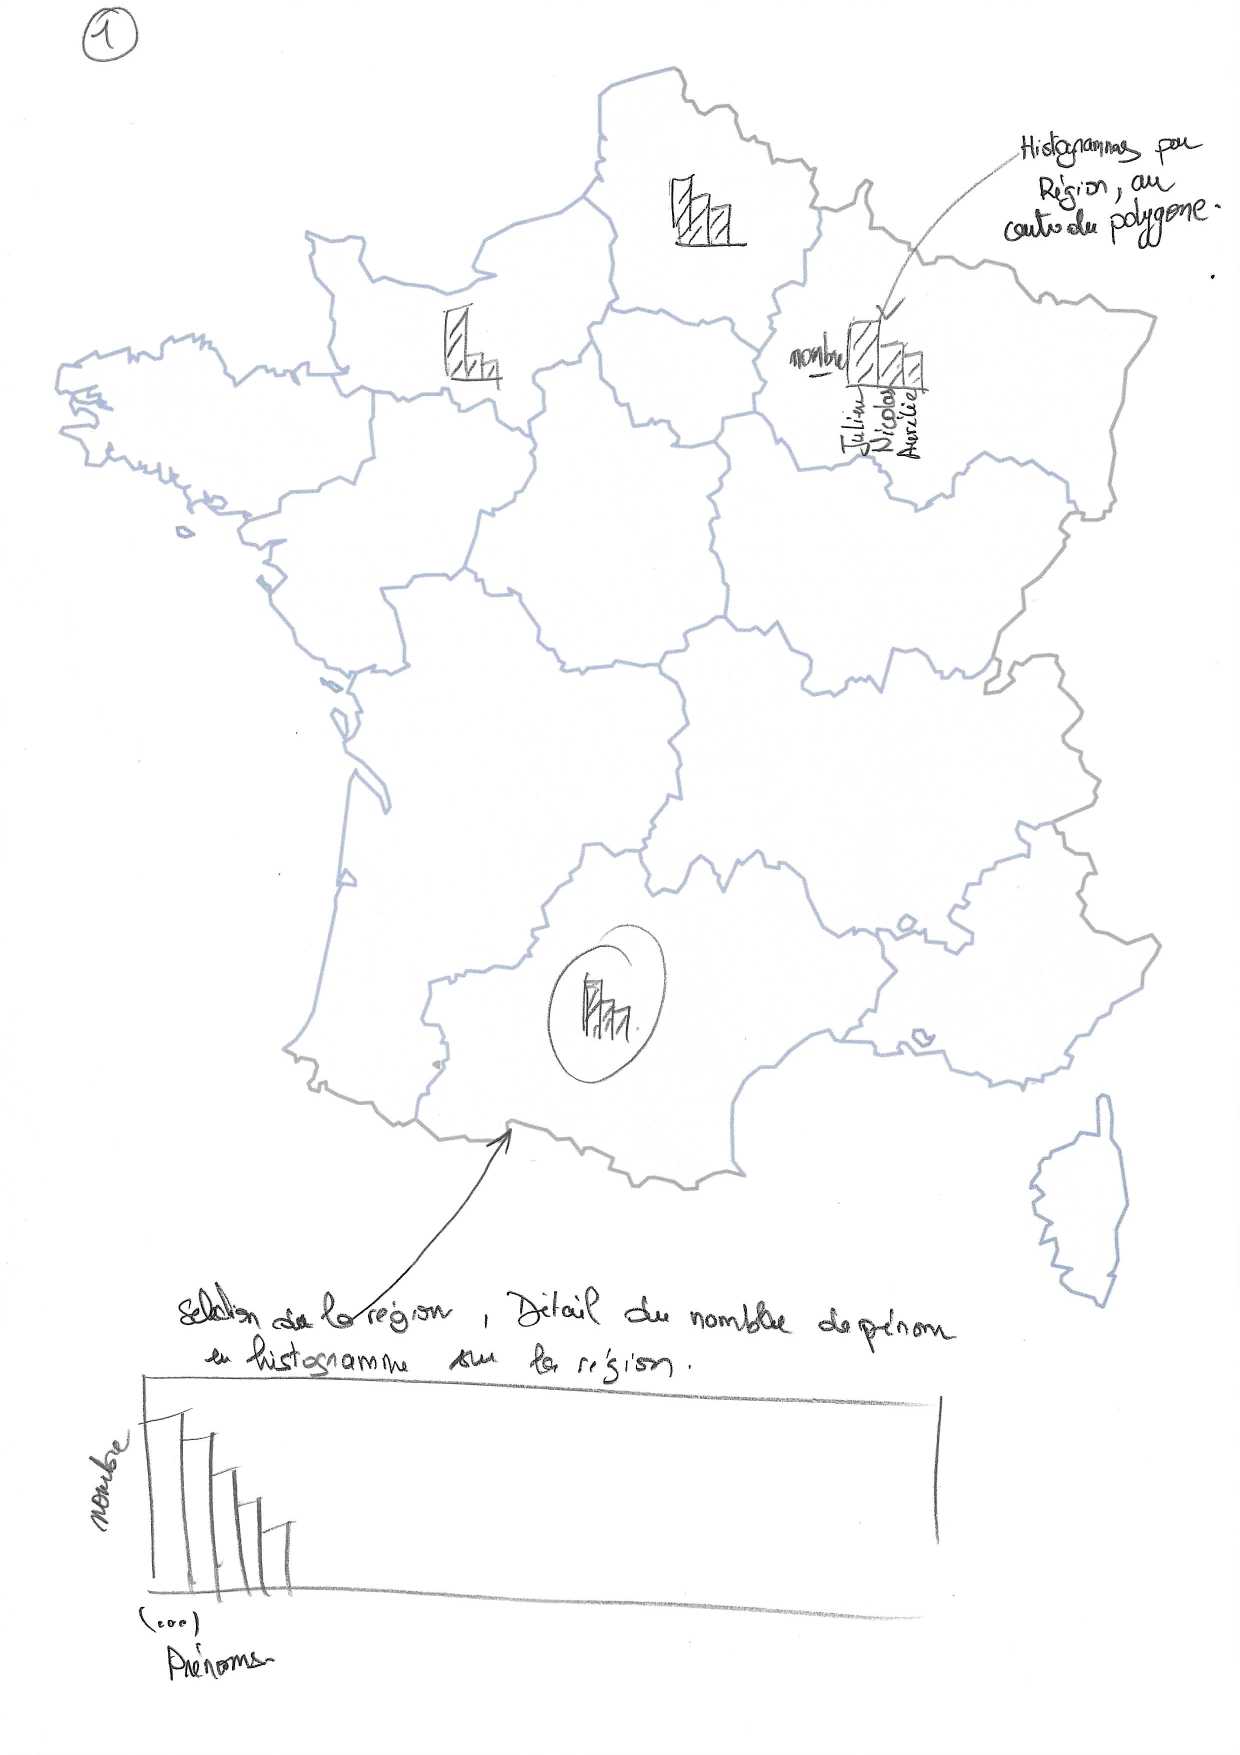 1
Histogrammes par
Région, au
centre du polygone.
nombre
Julien
Nicolas
Aurélie
Selection de la région, Détail du nombre de prénom
en histogramme sur la région.
nombre
(...)
Prénoms